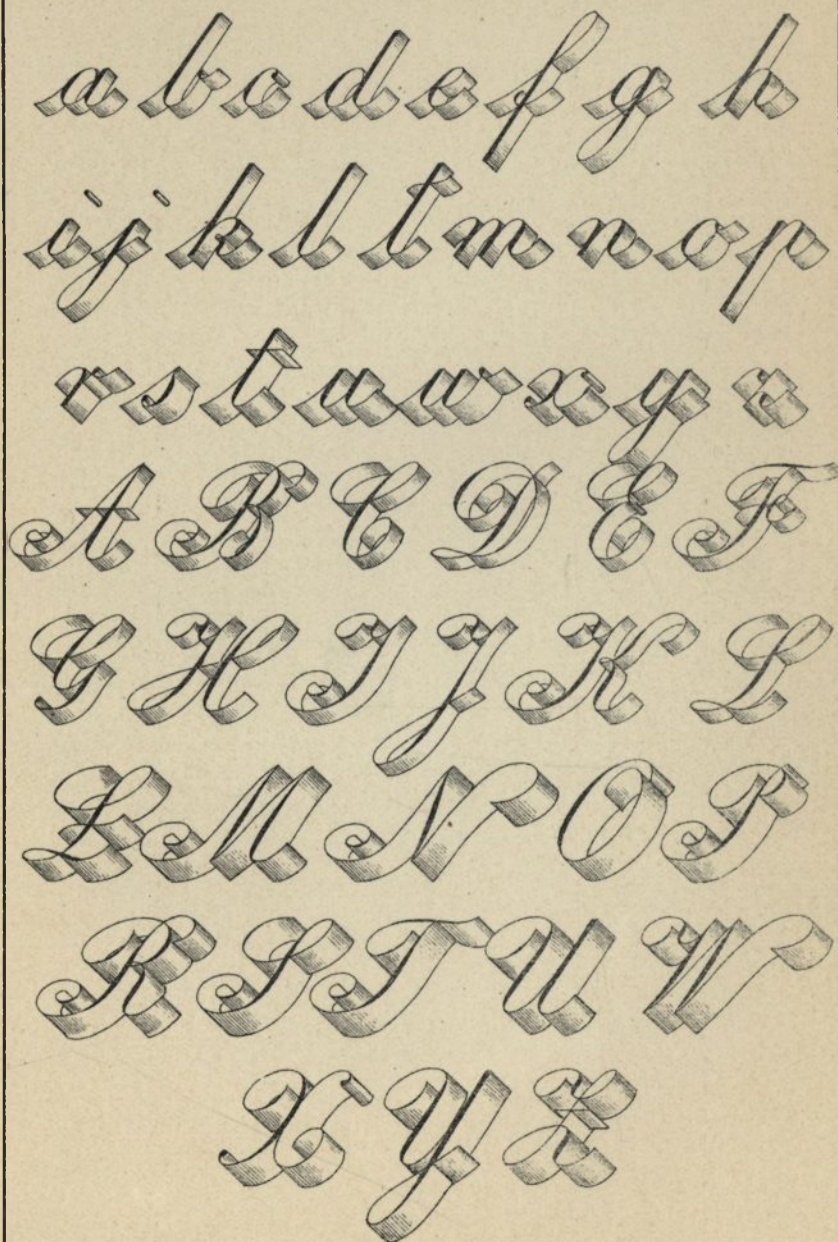 a b c d e f g h
i j k l t m n o p
r s t u w x y z
A B C D E F
G H I J K L
L M N O P
R S T U W
X Y Z